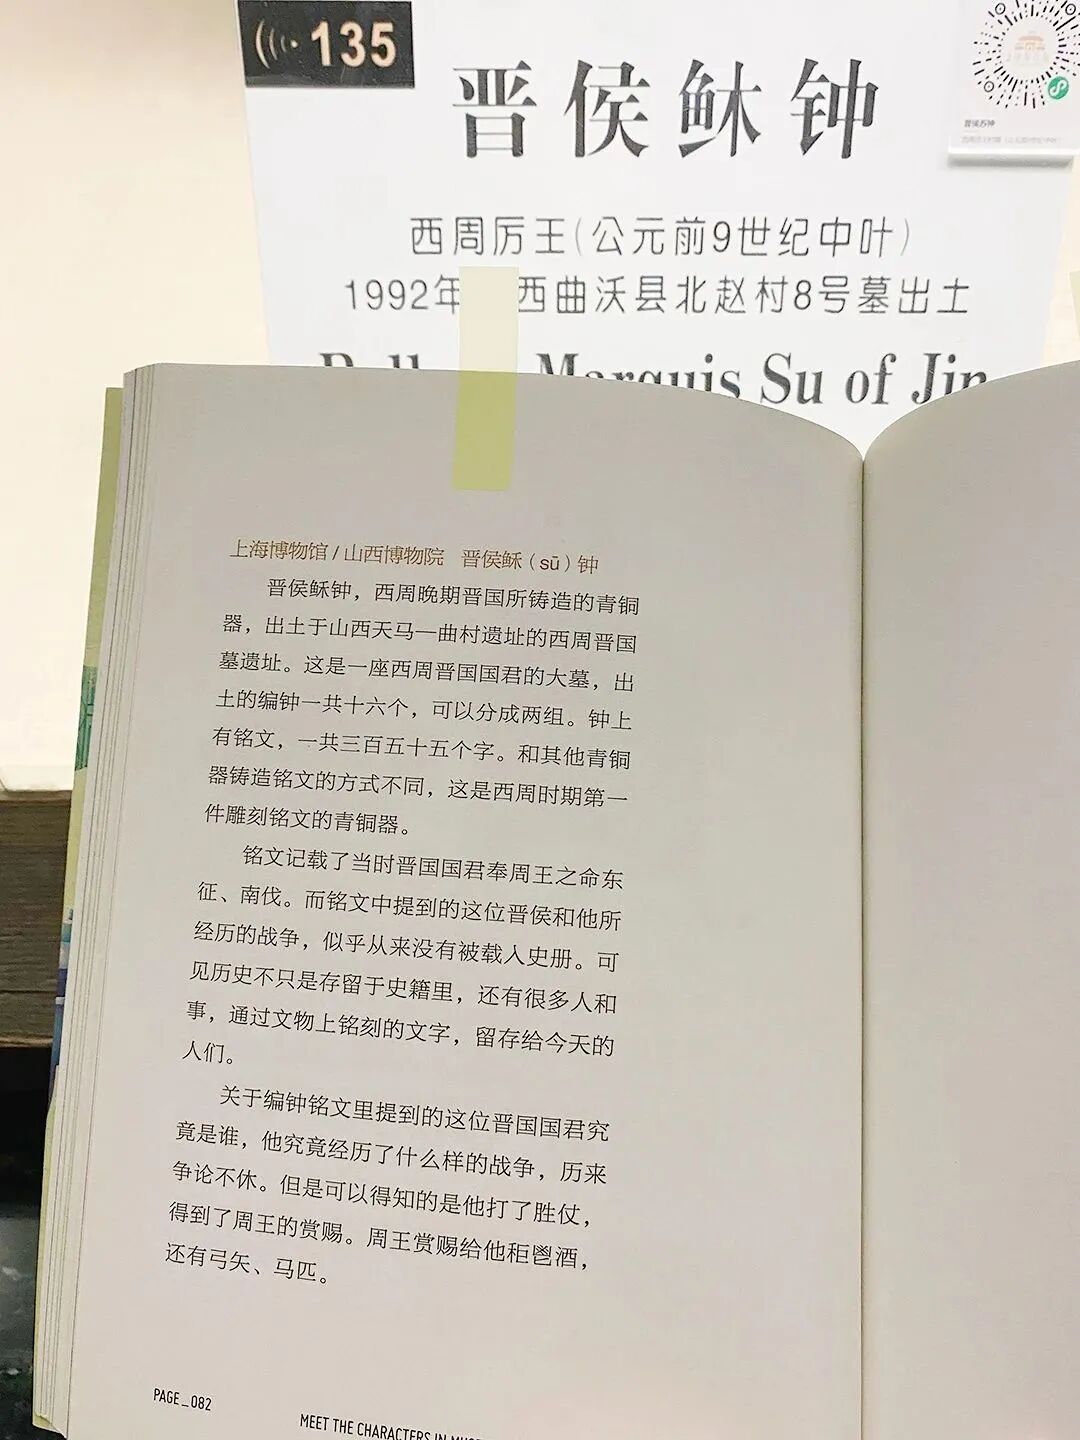 135
晋侯稣钟
西周厉王(公元前9世纪中叶)
1992年 西曲沃县北赵村8号墓出土
Marquis Su of Jin
晋侯苏钟
上海博物馆/山西博物院 晋侯稣(sū)钟
晋侯稣钟，西周晚期晋国所铸造的青铜
器，出土于山西天马—曲村遗址的西周晋国
墓遗址。这是一座西周晋国国君的大墓，出
土的编钟一共十六个，可以分成两组。钟上
有铭文，一共三百五十五个字。和其他青铜
器铸造铭文的方式不同，这是西周时期第一
件雕刻铭文的青铜器。
铭文记载了当时晋国国君奉周王之命东
征、南伐。而铭文中提到的这位晋侯和他所
经历的战争，似乎从来没有被载入史册。可
见历史不只是存留于史籍里，还有很多人和
事，通过文物上铭刻的文字，留存给今天的
人们。
关于编钟铭文里提到的这位晋国国君究
竟是谁，他究竟经历了什么样的战争，历来
争论不休。但是可以得知的是他打了胜仗，
得到了周王的赏赐。周王赏赐给他秬鬯酒，
还有弓矢、马匹。
PAGE_082
MEET THE CHARACTERS IN